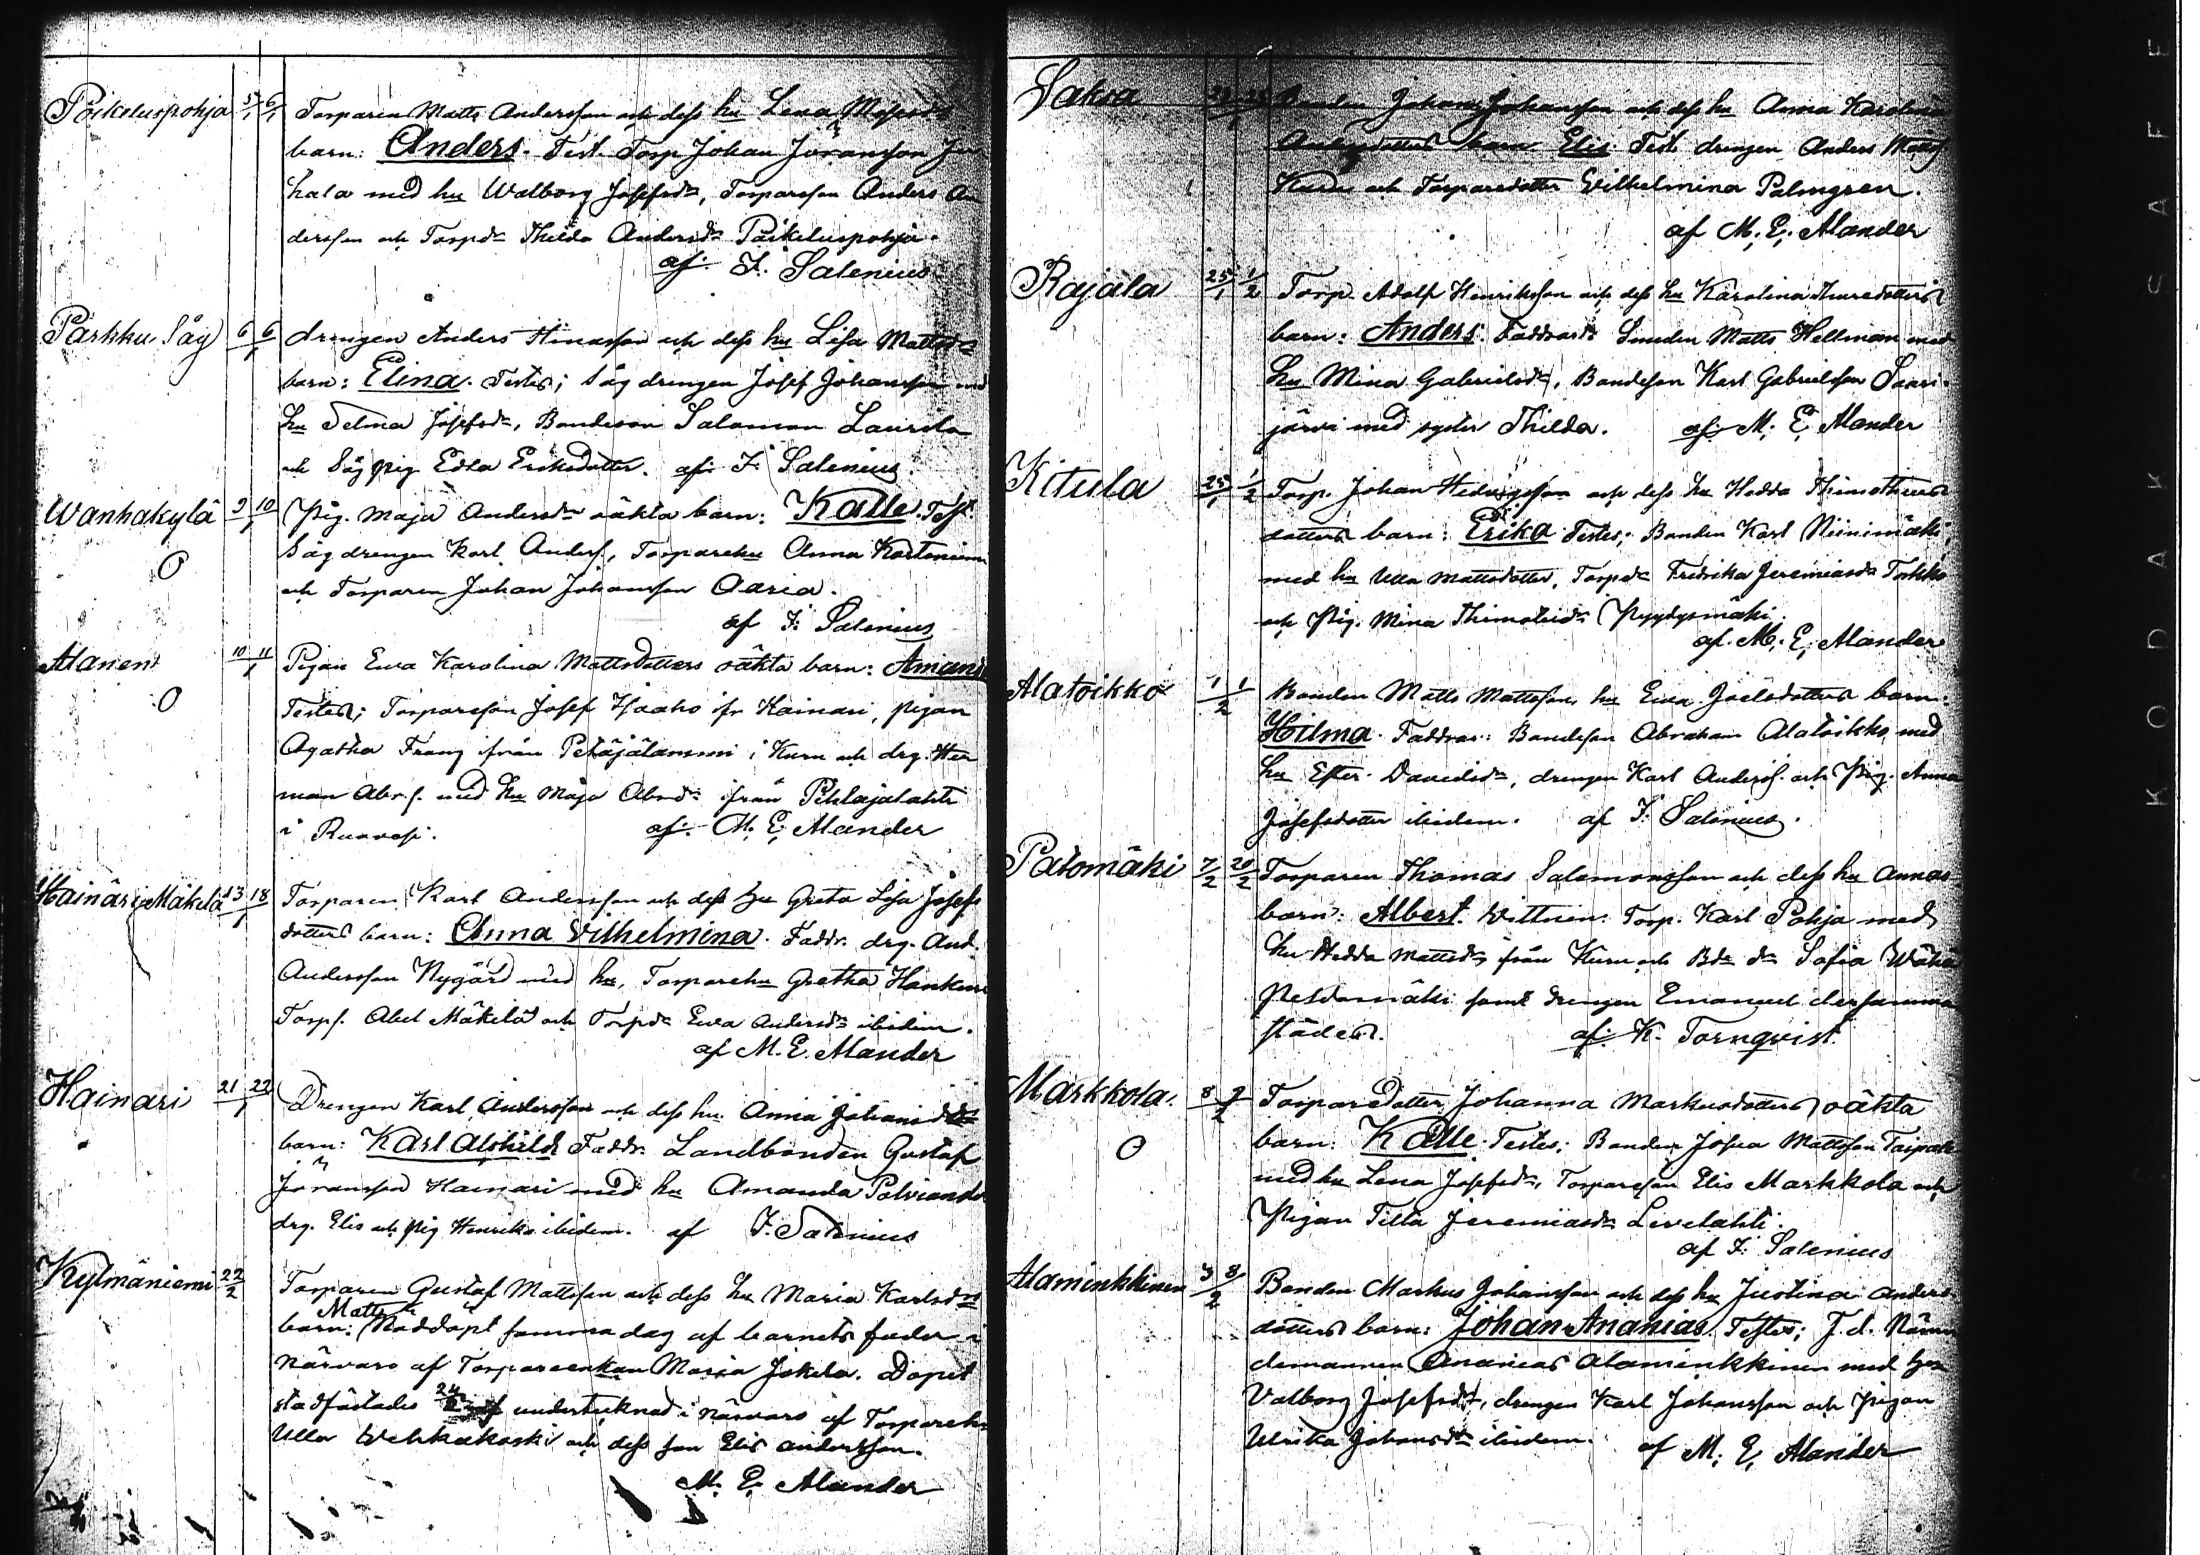 Päikeluspohja 5/1 6/1 Torparen Matts Andersson och dess hu Lena
barn: Anders. Test. Torp Johan Joransson
hala med hu Walborg Josefsda, Torpareson Anders An
dersson och Torpda Thilda Andersda Päikeluspohja.
af F. Salenius
Parkku Såg 6/1 6/1 drengen Anders och dess hu Lisa Mattsda
barn: Elina. Testes; Såg drengen Josef Johansson med
hu Selma Josefsda, Bondeson Salomon Laurila
och Såg pig. Edla Eriksdotter. af F. Salenius.
Wanhakylä 9/1 10/1 Pig. Maja Andersda oäkta barn: Kalle. Test.
Såg drengen Karl Anders., Torparehu Anna
och Torparen Johan Johansson Aaria.
O
af F. Salenius
Alanen 10/1 11/1 Pigan Ewa Karolina Mattsdotters oäkta barn: Amanda
O
Testes; Torpareson Josef Haaho ifr Hainari, pigan
Agatha Franz ifrån Petäjälammi i Kuru och drg. Her
man Abr.s. med hu Maja Abrda ifrån Pihlajalahti
i Ruovesi. af M. E. Alander
Hainäri Mäkelä 13/1 18/1 Torparen Karl Andersson och dess hu Greta Lisa Josefs
dotters barn: Anna Vilhelmina. Faddr. drg. And.
Andersson Nygård med hu, Torparehu Gretha
Torps. Abel Mäkelä och Torpda Ewa Andersda ibidem.
af M. E. Alander
Hainari 21/1 22/1 Drengen Karl Andersson och dess hu Anna
barn: Karl Faddr. Landbonden Gustaf
Joransson Hainari med hu Amanda
drg. Elis och pig Henrika ibidem. af F. Salenius
Kylmäniemi 22/2 Torparen Gustaf Mattsson och dess hu Maria Karlsdrs
Matts
barn: Nöddöpt samma dag af barnets fader i
närvaro af Torpareenkan Maria Jokela. Dopet
stadfästades 24/2 af undertecknad i närvaro af Torparehu
Ulla Wehkakoski och dess son Elis Andersson.
M. E. Alander
Saksa Bonden Johan Johansson och dess hu Anna Karolina
barn Elis. Test. drengen Anders Matts.
Kuru och Torparedotter Vilhelmina Palmgren.
af M. E. Alander
Rajala 25/1 1/2 Torp. Adolf Henriksson och dess hu Karolina Thuredotters
barn: Anders. Faddrar: Smeden Matts Hellman med
hu Mina Gabrielsda, Bondeson Karl Gabrielsson Saari-
järvi med syster Thilda. af M. E. Alander
Kitula 25/1 1/2 Torp. Johan och dess hu Hedda Thimotheus
dotters barn: Erika. Testes; Bonden Karl Niinimäki,
med hu Ulla Mattsdotter, Torpda Fredrika Jeremiasda
och Pig. Mina Thimoteida Pyydysmäki.
af M. E. Alander
Alatoikko 1/2 1/2 Bonden Matts Mattsson, hu Ewa Joelsdotters barn:
Hilma. Faddrar: Bondeson Abraham Alatoikko med
hu Ester Davidsda, drengen Karl Anders. och Pig. Anna
Josefsdotter ibidem. af F. Salenius.
Patomäki 7/2 20/2 Torparen Thomas Salomonsson och dess hu Annas
barn: Albert. Vittnen: Torp. Karl Pohja med
hu Hedda Mattsda från Kuru och Bde da Sofia
samt drengen Emanuel dersamma
städes. af K. Tornqvist.
Markkola. 8/2 9/2 Torparedotter Johanna Markusdotters oäkta
O
barn: Kalle. Testes: Bonden Josua Mattsson Taipale
med hu Lena Josefsda, Torpareson Elis Markkola och
Pigan Tilta Jeremiasda Livelahti.
af F. Salenius
Alaminkkinen 3/2 8/2 Bonden Markus Johansson och dess hu Justina Anders
dotters barn: Johan Ananias. Testes; F.d. Nämn
demannen Ananias Alaminkkinen med hu
Valborg Josefsdr, drengen Karl Johansson och Pigan
Ulrika Johansda ibidem. af M. E. Alander
KODAK SAFE